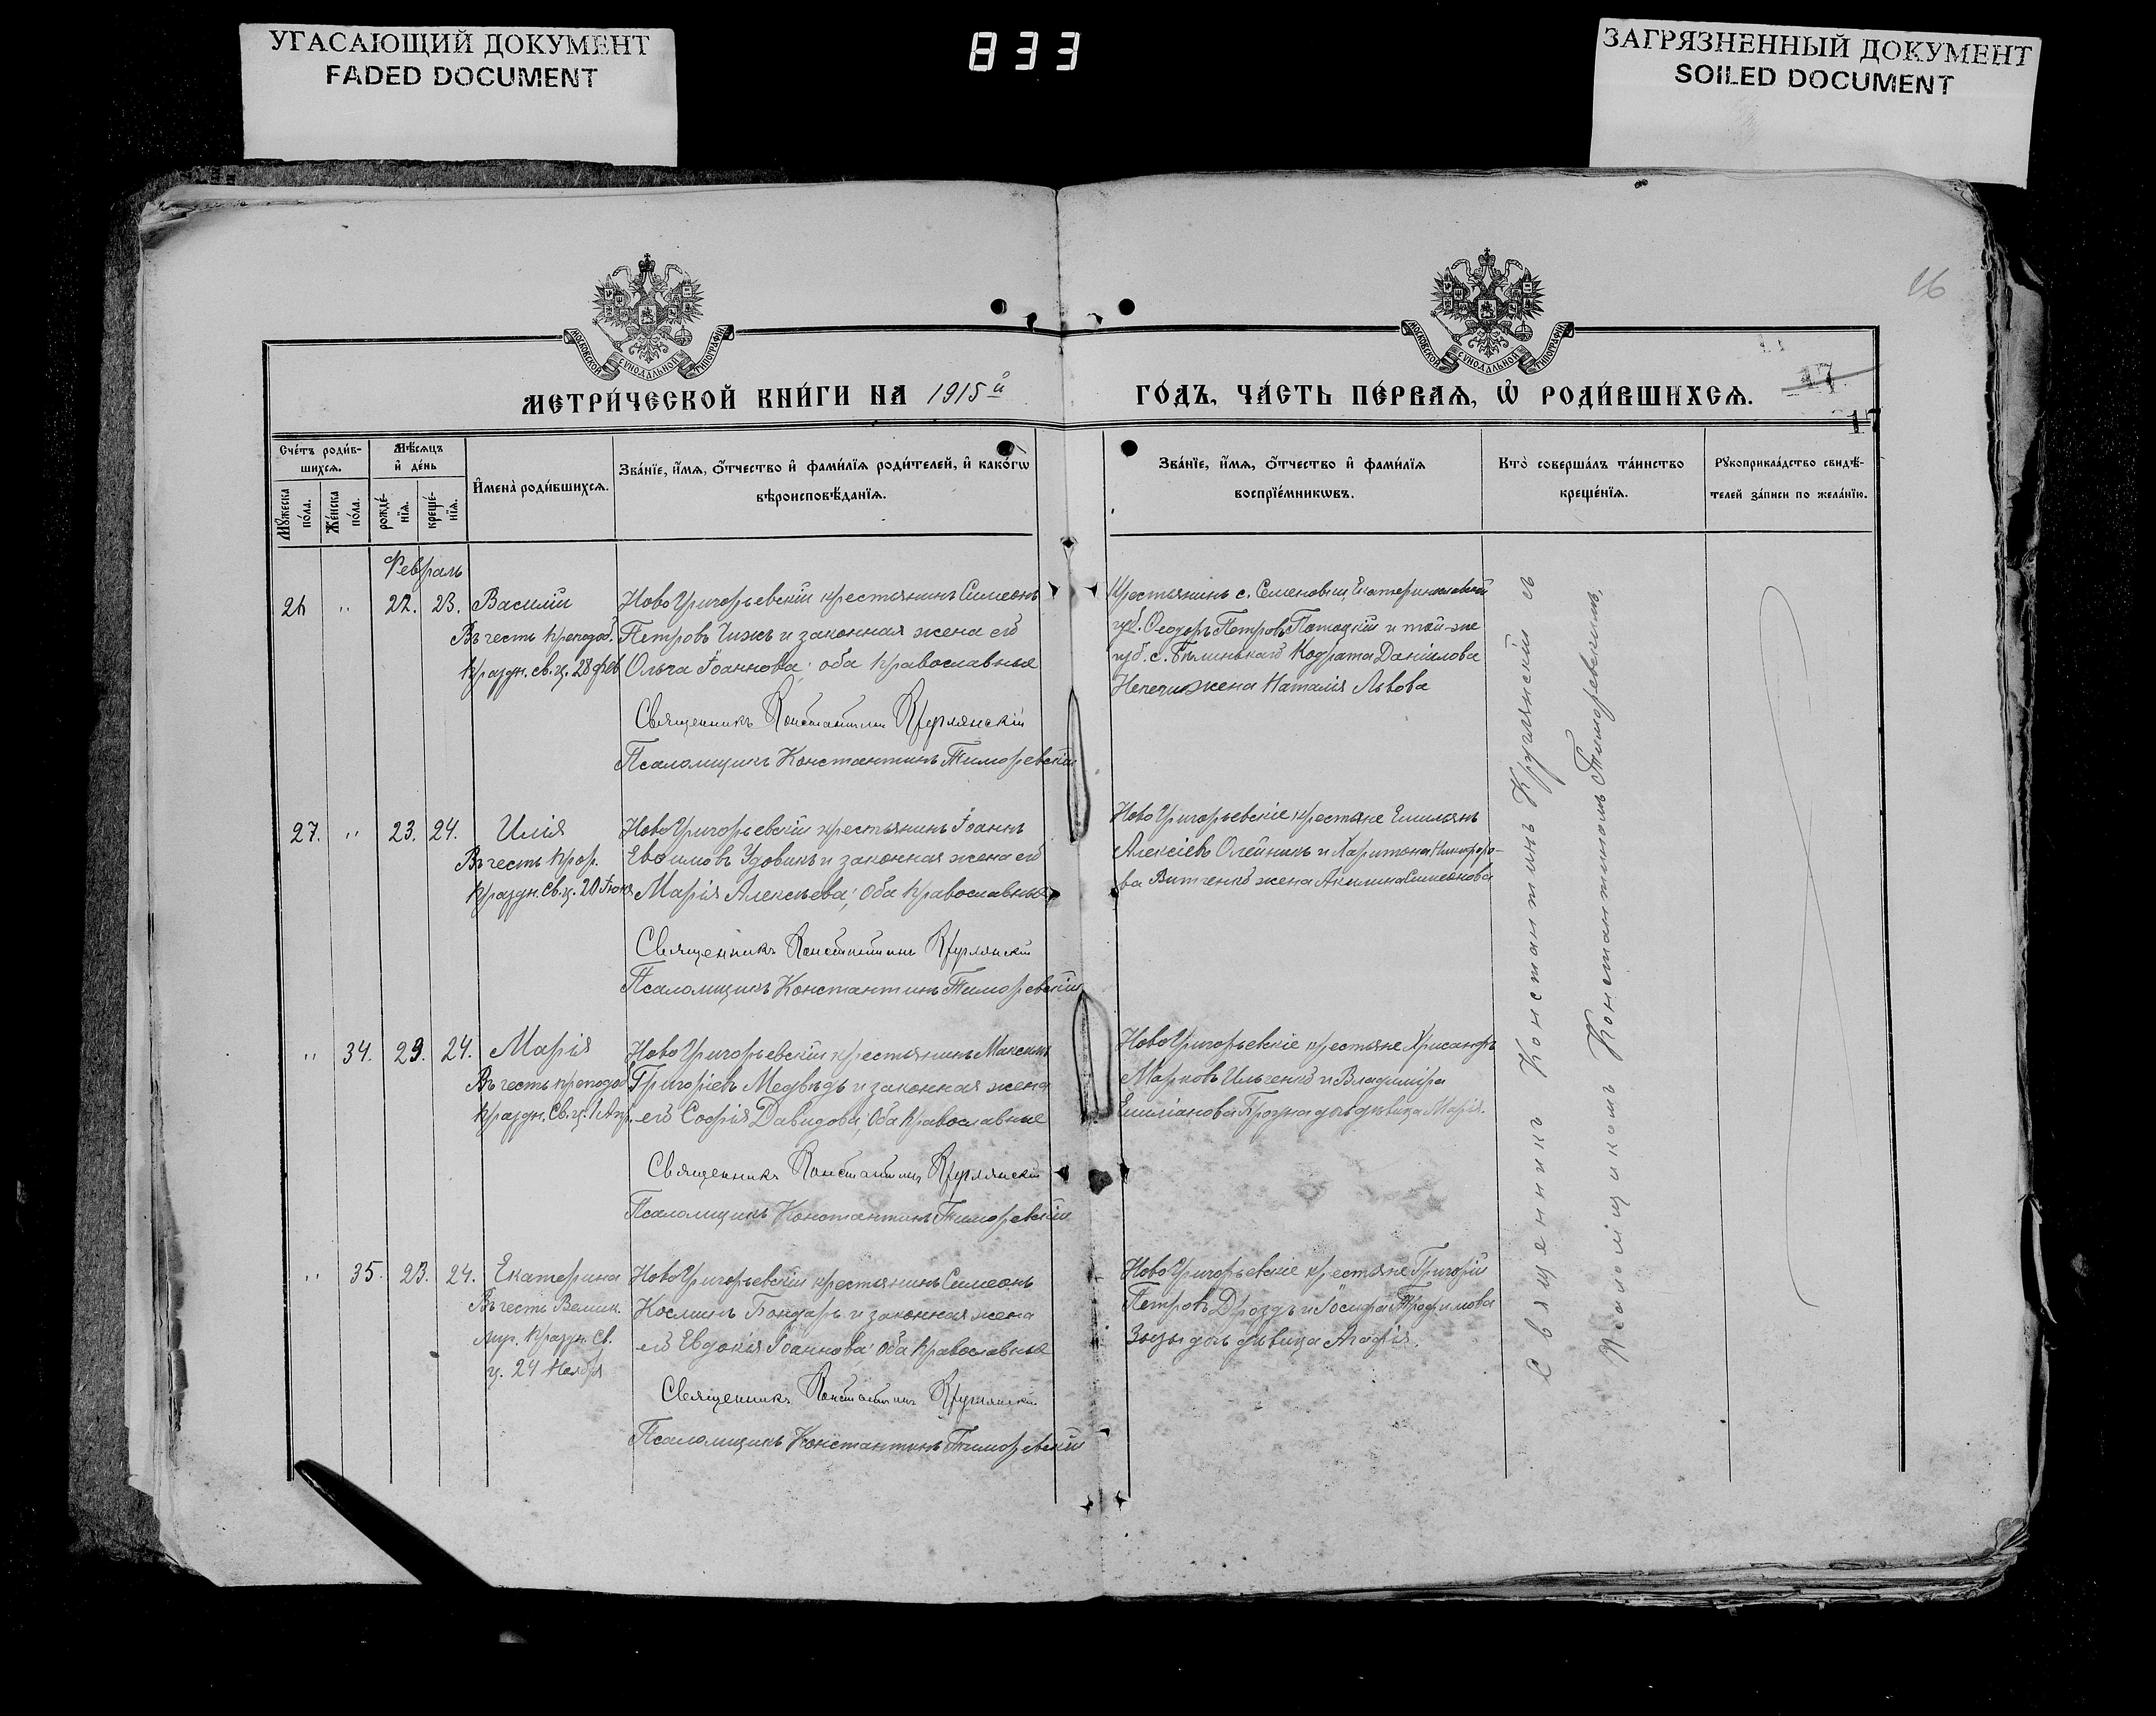 УГАСАЮЩИЙ ДОКУМЕНТ
FADED DOCUMENT
833
ЗАГРЯЗНЕННЫЙ ДОКУМЕНТ
SOILED DOCUMENT
16
МОСКОВСКОЙ СУНОДАЛЬНОЙ ТИПОГРАФІИ
МОСКОВСКОЙ СУНОДАЛЬНОЙ ТИПОГРАФІИ
МЕТРИ́ЧЕСКОЙ КНИ́ГИ НА 1915й
ГО́ДЪ, ЧА́СТЬ ПЕ́РВАѦ, Ѡ҆ РОДИ́ВШИХСѦ.
17
17
Сче́тъ роди́в-
шихсѧ.
Мѣ́сѧцъ
и҆ де́нь
Мꙋ́жеска по́ла.
Же́нска по́ла.
рожде́-нїѧ.
креще́-нїѧ.
И҆мена̀ роди́вшихсѧ.
Зва́нїе, и҆́мѧ, ѻ҆́тчество и҆ фами́лїѧ роди́телей, и҆ како́гѡ
вѣроисповѣ́данїѧ.
Зва́нїе, и҆́мѧ, ѻ҆́тчество и҆ фами́лїѧ
воспрїе́мникѡвъ.
Кто̀ соверша́лъ та́инство
креще́нїѧ.
Рꙋкоприкла́дство свидѣ́-
телей за́писи по жела́нїю.
Февраль
26 " 22. 23. Василій
Въ честь препод.
праздн. св. ц. 28 фев
НовоГригорьевскій крестьянинъ Симеонъ
Петровъ Чижъ и законная жена его
Ольга Іоаннова; оба православные
Священникъ Константинъ Круглянскій
Псаломщикъ Константинъ Тиморевскій
Крестьянинъ с. Семеновки, Екатеринославской
губ. Ѳеодоръ Петровъ Потоцкій и той-же
губ. с. Бѣленькаго Кодрата Даніилова
жена Наталія Львова
27. " 23. 24. Илія
Въ честь прор.
праздн. св. ц. 20 Іюля
НовоГригорьевскій крестьянинъ Іоаннъ
Евѳимовъ Удовикъ и законная жена его
Марія Алексѣева; оба православные
Священникъ Константинъ Круглянскій
Псаломщикъ Константинъ Тиморевскій
НовоГригорьевскіе крестьяне Емильянъ
Алексіевъ Олейникъ и Харитона Никифоро-
ва Витченко жена Акилина Симеонова
" 34. 23. 24. Марія
Въ честь преподоб.
праздн. св. ц. 1 Апр.
НовоГригорьевскій крестьянинъ Максимъ
Григоріевъ Медвѣдь и законная жена
его Софія Давидова; оба православные
Священникъ Константинъ Круглянскій
Псаломщикъ Константинъ Тиморевскій
НовоГригорьевскіе крестьяне Хрисанфъ
Марковъ Ильченко и Владиміра
Емиліанова дочь дѣвица Марія.
" 35. 23. 24. Екатерина
Въ честь Велик.
муч. праздн. св.
ц. 24 Ноября
НовоГригорьевскій крестьянинъ Симеонъ
Косминъ Бондарь и законная жена
его Евдокія Іоаннова; оба православные
Священникъ Константинъ Круглянскій
Псаломщикъ Константинъ Тиморевскій
НовоГригорьевскіе крестьяне Григорій
Петровъ Дроздъ и Іосифа Трофимова
Зозы дочь дѣвица Агафія.
Священникъ Константинъ Круглянскій съ
Псаломщикомъ Константиномъ Тиморевскимъ.